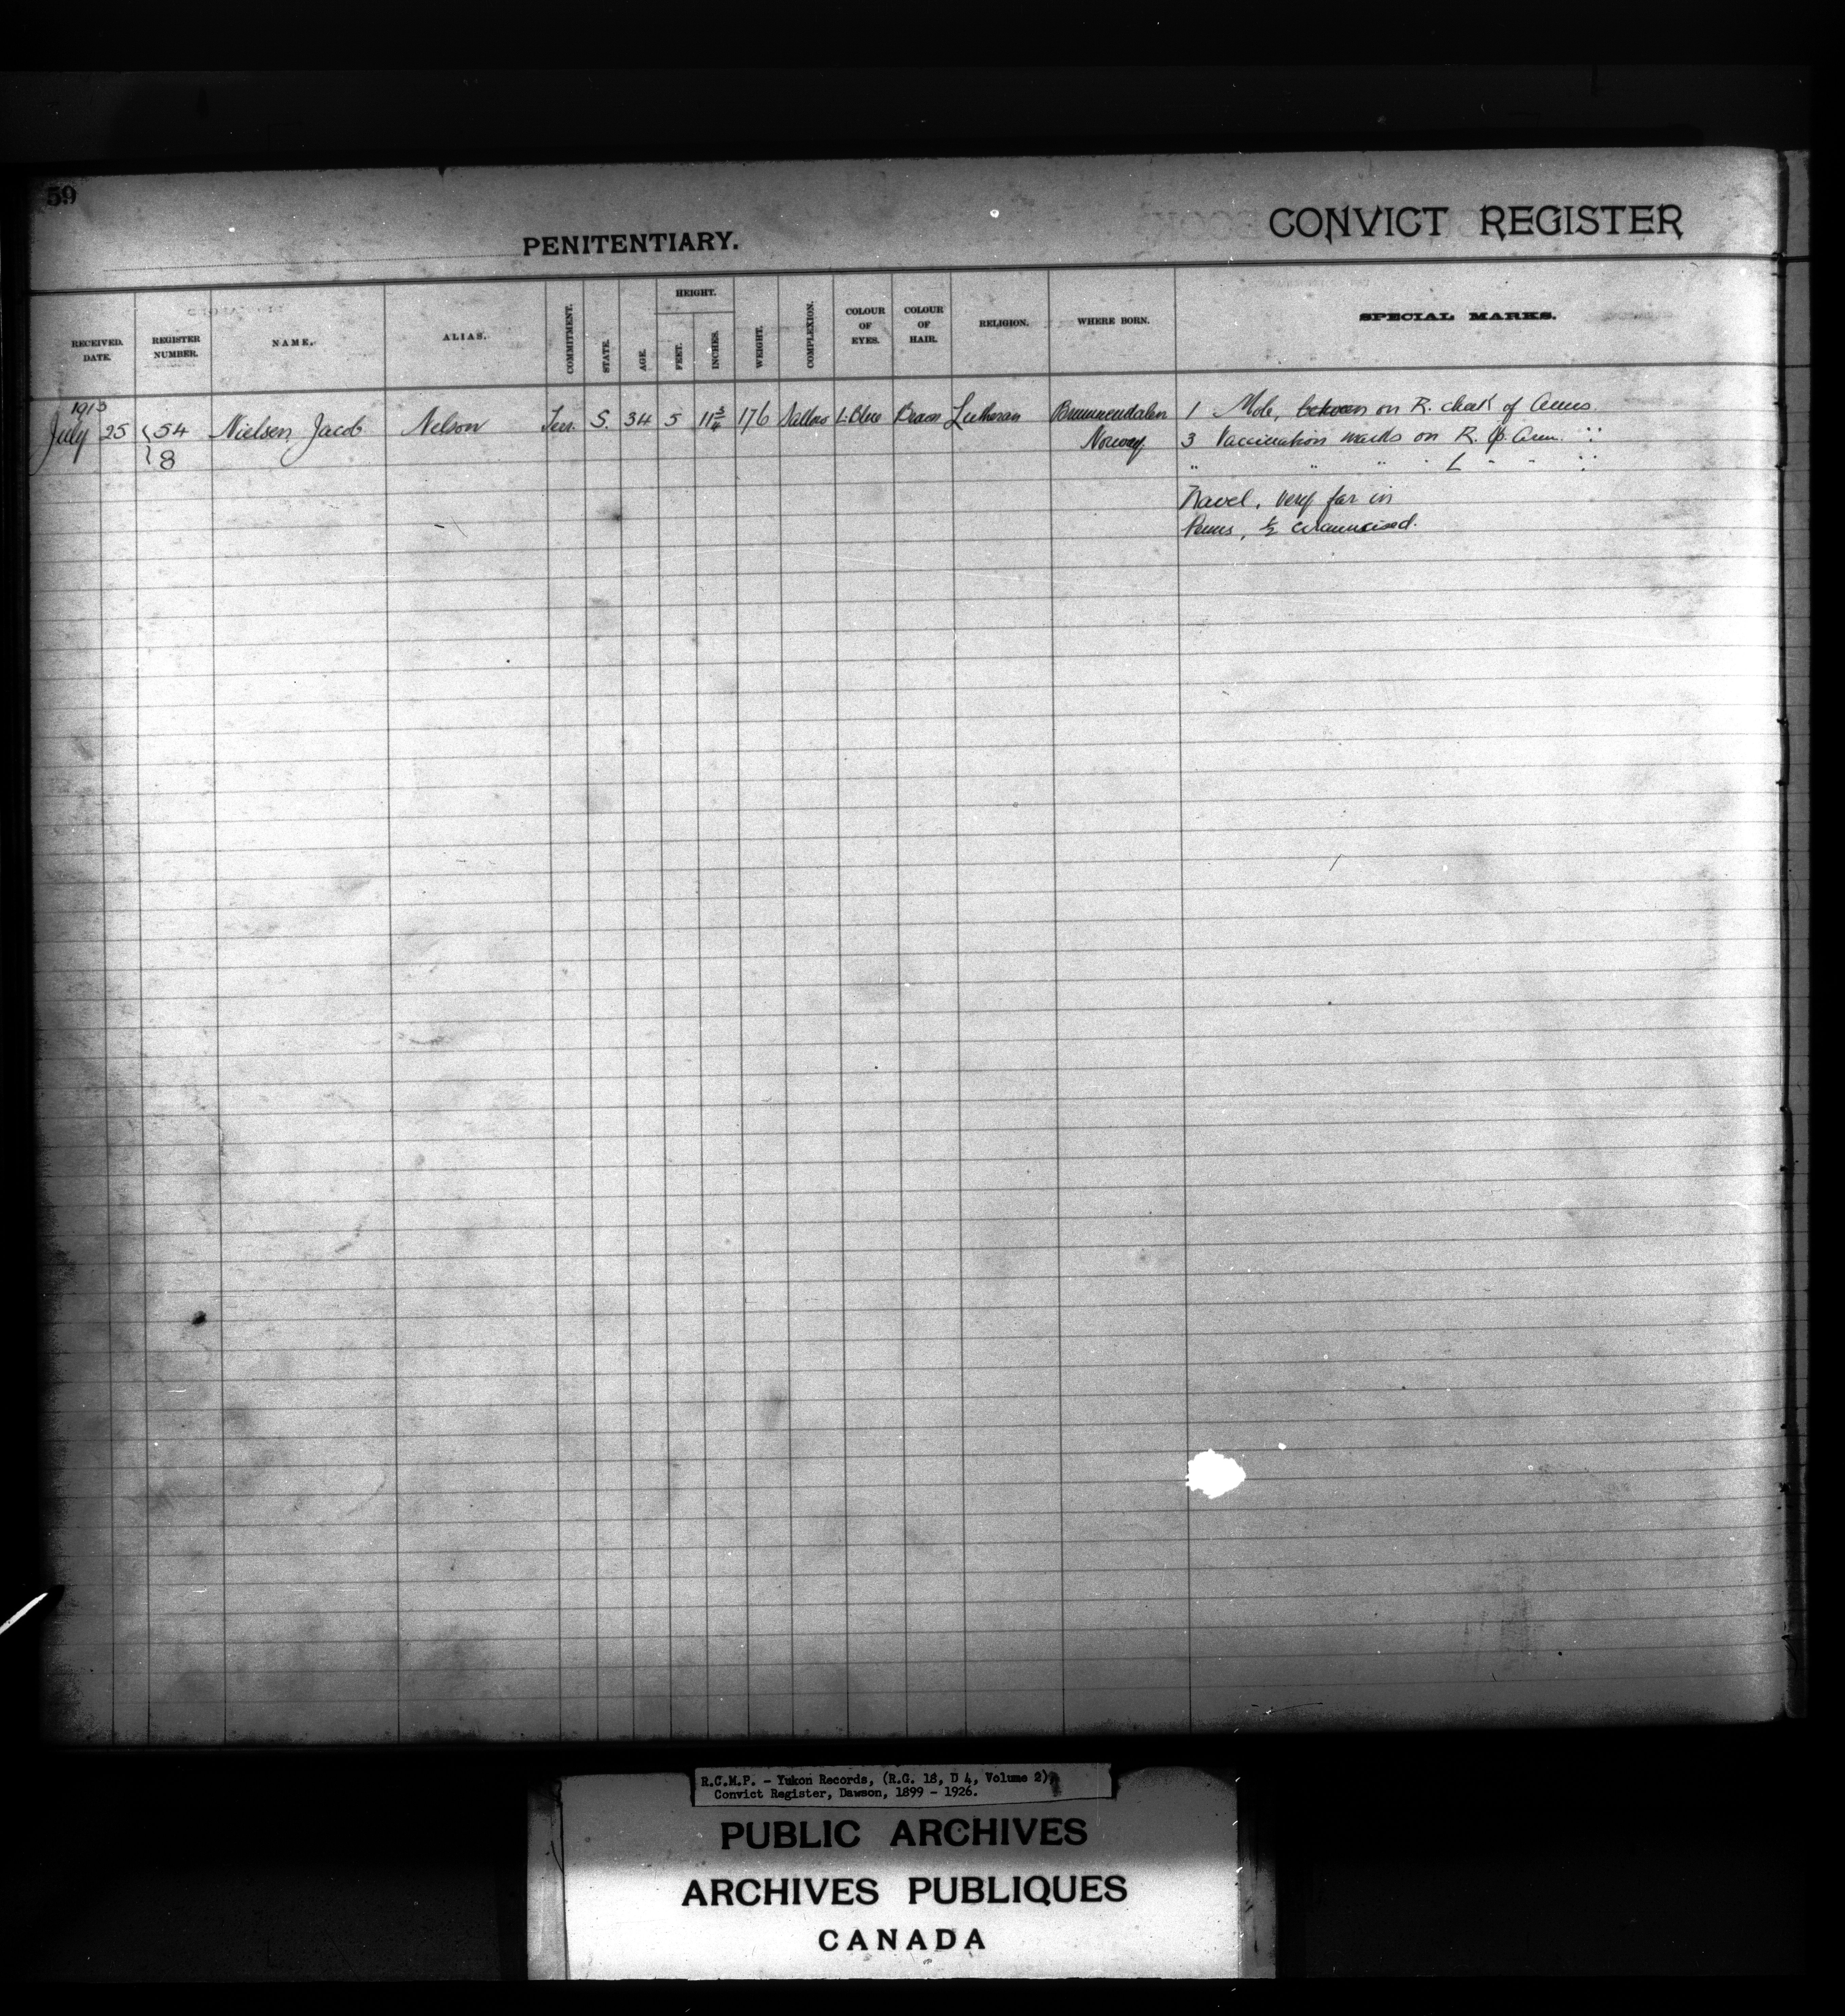 59
PENITENTIARY.
CONVICT REGISTER
RECEIVED. DATE.
REGISTER NUMBER.
NAME.
ALIAS.
COMMITMENT.
STATE.
AGE.
HEIGHT.
FEET.
INCHES.
WEIGHT.
COMPLEXION.
COLOUR OF EYES.
COLOUR OF HAIR.
RELIGION.
WHERE BORN.
SPECIAL MARKS.
1913
July 25 54 Nielsen Jacob Nelson S. 34 5 11 3/4 176 Sallow L. Blue Brown Lutheran 1 Mole, between on R. cheek of Anus
8 Norway 3 Vaccination marks on R. Arm
" " " L " "
Navel, very far in
Penis, 1/2 circumcised.
R.C.M.P. - Yukon Records, (R.G. 18, D 4, Volume 2),
Convict Register, Dawson, 1899 - 1926.
PUBLIC ARCHIVES
ARCHIVES PUBLIQUES
CANADA